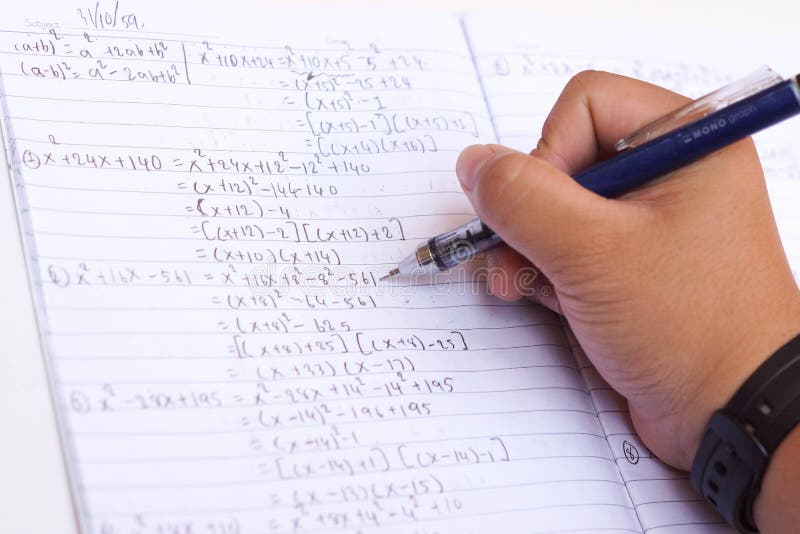 Subject 31/10/59.
(a+b)² = a² + 2ab + b²
(a-b)² = a² - 2ab + b²
x² + 10x + 24 = x² + 10x + 5² - 5² + 24
= (x+5)² - 25 + 24
= (x+5)² - 1
= [(x+5)-1][(x+5)+1]
= (x+4)(x+6)]
x² + 24x + 140 = x² + 24x + 12² - 12² + 140
= (x+12)² - 144 - 140
= (x+12) - 4
= [(x+12)-2][(x+12)+2]
= (x+10)(x+14)
x² + 16x - 561 = x² + 16x + 8² - 8² - 561
= (x+8)² - 64 - 561
= (x+8)² - 625
= [(x+8)+25][(x+8)-25]
= (x+33)(x-17)
x² - 28x + 195 = x² - 28x + 14² - 14² + 195
= (x-14)² - 196 + 195
= (x+14)² - 1
= [(x-14)+1][(x-14)-1]
= (x-13)(x-15)
= x² + 8x + 4² - 4² + 10
MONO graph
dreamstime